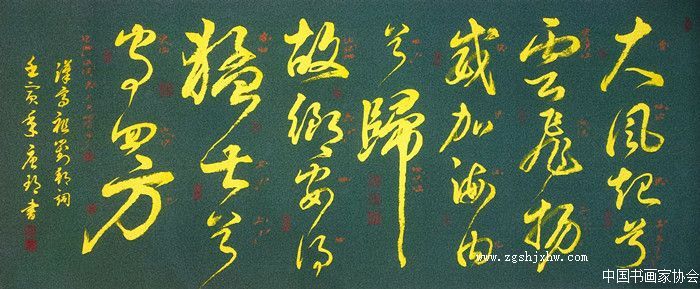 大风起兮
云飞扬
威加海内
兮歸
故鄉安得
猛士兮
守四方
漢高祖劉邦詞
壬寅年唐 書
www.zgshjxhw.com
中国书画家协会